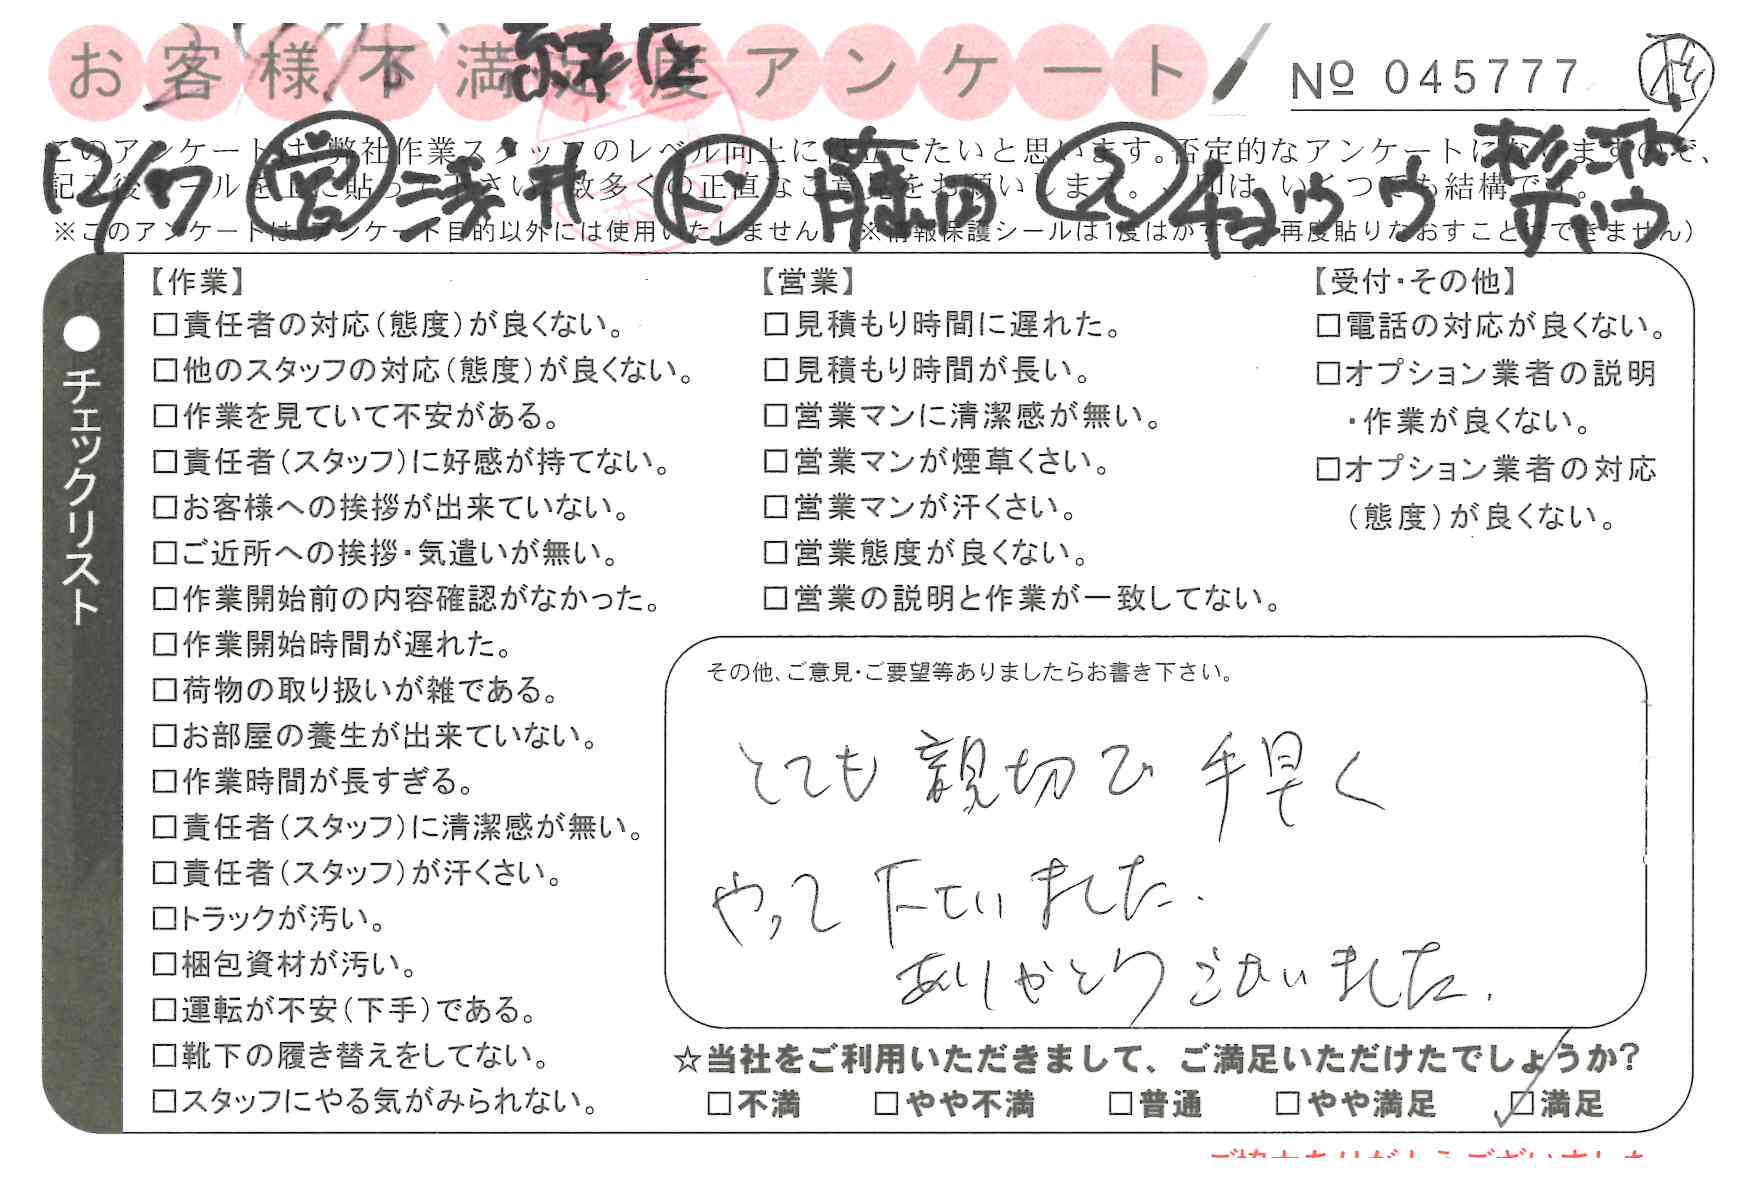 お客様不満足度アンケート
緑区
№ 045777
このアンケートは、弊社作業スタッフのレベル向上に役立てたいと思います。否定的なアンケートになりますので、
記入後シールを上に貼って下さい。数多くの正直なご意見をお願いします。✓印は、いくつでも結構です。
12/7 営 藤田
※このアンケートは、アンケート目的以外には使用いたしません。(※情報保護シールは1度はがすと、再度貼りなおすことはできません)
チェックリスト
【作業】
□責任者の対応(態度)が良くない。
□他のスタッフの対応(態度)が良くない。
□作業を見ていて不安がある。
□責任者(スタッフ)に好感が持てない。
□お客様への挨拶が出来ていない。
□ご近所への挨拶・気遣いが無い。
□作業開始前の内容確認がなかった。
□作業開始時間が遅れた。
□荷物の取り扱いが雑である。
□お部屋の養生が出来ていない。
□作業時間が長すぎる。
□責任者(スタッフ)に清潔感が無い。
□責任者(スタッフ)が汗くさい。
□トラックが汚い。
□梱包資材が汚い。
□運転が不安(下手)である。
□靴下の履き替えをしてない。
□スタッフにやる気がみられない。
【営業】
□見積もり時間に遅れた。
□見積もり時間が長い。
□営業マンに清潔感が無い。
□営業マンが煙草くさい。
□営業マンが汗くさい。
□営業態度が良くない。
□営業の説明と作業が一致してない。
【受付・その他】
□電話の対応が良くない。
□オプション業者の説明
・作業が良くない。
□オプション業者の対応
(態度)が良くない。
その他、ご意見・ご要望等ありましたらお書き下さい。
とても親切で手早く
やって下ていました.
ありがとうございました.
☆当社をご利用いただきまして、ご満足いただけたでしょうか?
□不満 □やや不満 □普通 □やや満足 ☑満足
ご協力ありがとうございました